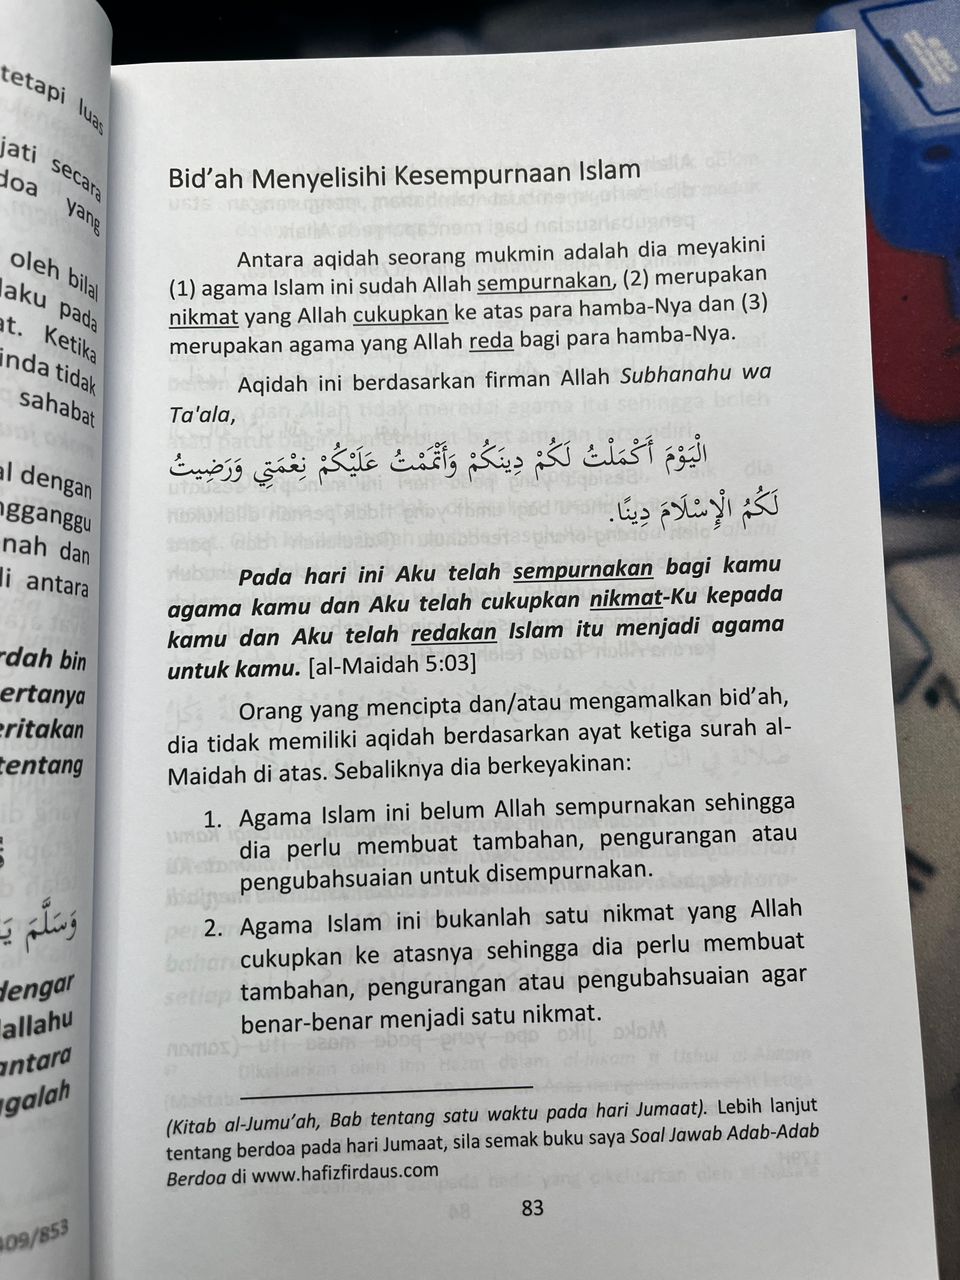 tetapi luas
jati secara
doa yang
oleh bilal
laku pada
at. Ketika
inda tidak
sahabat
al dengan
ngganggu
nah dan
di antara
rdah bin
ertanya
eritakan
tentang
وَسَلَّمَ
dengar
allahu
antara
ggalah
409/853
Bid'ah Menyelisihi Kesempurnaan Islam
Antara aqidah seorang mukmin adalah dia meyakini
(1) agama Islam ini sudah Allah sempurnakan, (2) merupakan
nikmat yang Allah cukupkan ke atas para hamba-Nya dan (3)
merupakan agama yang Allah reda bagi para hamba-Nya.
Aqidah ini berdasarkan firman Allah Subhanahu wa
Ta'ala,
الْيَوْمَ أَكْمَلْتُ لَكُمْ دِينَكُمْ وَأَتْمَمْتُ عَلَيْكُمْ نِعْمَتِي وَرَضِيتُ
لَكُمُ الْإِسْلَامَ دِينًا.
Pada hari ini Aku telah sempurnakan bagi kamu
agama kamu dan Aku telah cukupkan nikmat-Ku kepada
kamu dan Aku telah redakan Islam itu menjadi agama
untuk kamu. [al-Maidah 5:03]
Orang yang mencipta dan/atau mengamalkan bid'ah,
dia tidak memiliki aqidah berdasarkan ayat ketiga surah al-
Maidah di atas. Sebaliknya dia berkeyakinan:
1. Agama Islam ini belum Allah sempurnakan sehingga
dia perlu membuat tambahan, pengurangan atau
pengubahsuaian untuk disempurnakan.
2. Agama Islam ini bukanlah satu nikmat yang Allah
cukupkan ke atasnya sehingga dia perlu membuat
tambahan, pengurangan atau pengubahsuaian agar
benar-benar menjadi satu nikmat.
(Kitab al-Jumu'ah, Bab tentang satu waktu pada hari Jumaat). Lebih lanjut
tentang berdoa pada hari Jumaat, sila semak buku saya Soal Jawab Adab-Adab
Berdoa di www.hafizfirdaus.com
83